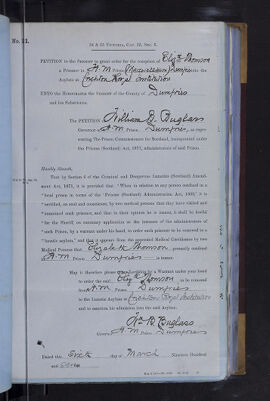 No. 11.
34 & 35 VICTORIA, CAP. 55, SEC. 6.
PETITION to the SHERIFF to grant order for the reception of Elizth Thomson
a Prisoner in H.M. Prison, (Maxwelltown) Dumfries into
the Asylum at Crichton Royal Institution
UNTO the HONOURABLE the SHERIFF of the COUNTY of Dumfries
and his Substitutes.
The PETITION of William D.
Governor of H.M. Prison, Dumfries, as representing
The Prison Commissioners for Scotland, incorporated under
the Prisons (Scotland) Act, 1877, administrators of said Prison.
Humbly Sheweth,
That by Section 6 of the Criminal and Dangerous Lunatics (Scotland) Amendment
Act, 1871, it is provided that "When in relation to any person confined in a
local prison in terms of the 'Prisons (Scotland) Administration Act, 1860,' it is
certified on soul and conscience, by two medical persons that they have visited
and examined such prisoner, and that in their opinion he is insane, it shall be lawful
for the Sheriff on summary application at the instance of the administrators of
such Prison, by a warrant under his hand, to order such prisoner to be removed to a
lunatic asylum," and that it appears from the annexed Medical Certificates by two
Medical Persons that Elizabeth Thomson, presently confined
in H.M. Prison, Dumfries is insane.
May it therefore please your Lordship by a Warrant under your hand
to order the said Elizth Thomson
to be removed from H.M. Prison, Dumfries
to the Lunatic Asylum at Crichton Royal Institution
and to sanction his admission into the said Asylum.
Wm D.
Governor, H.M. Prison, Dumfries
Dated this Sixth day of March Nineteen Hundred
and